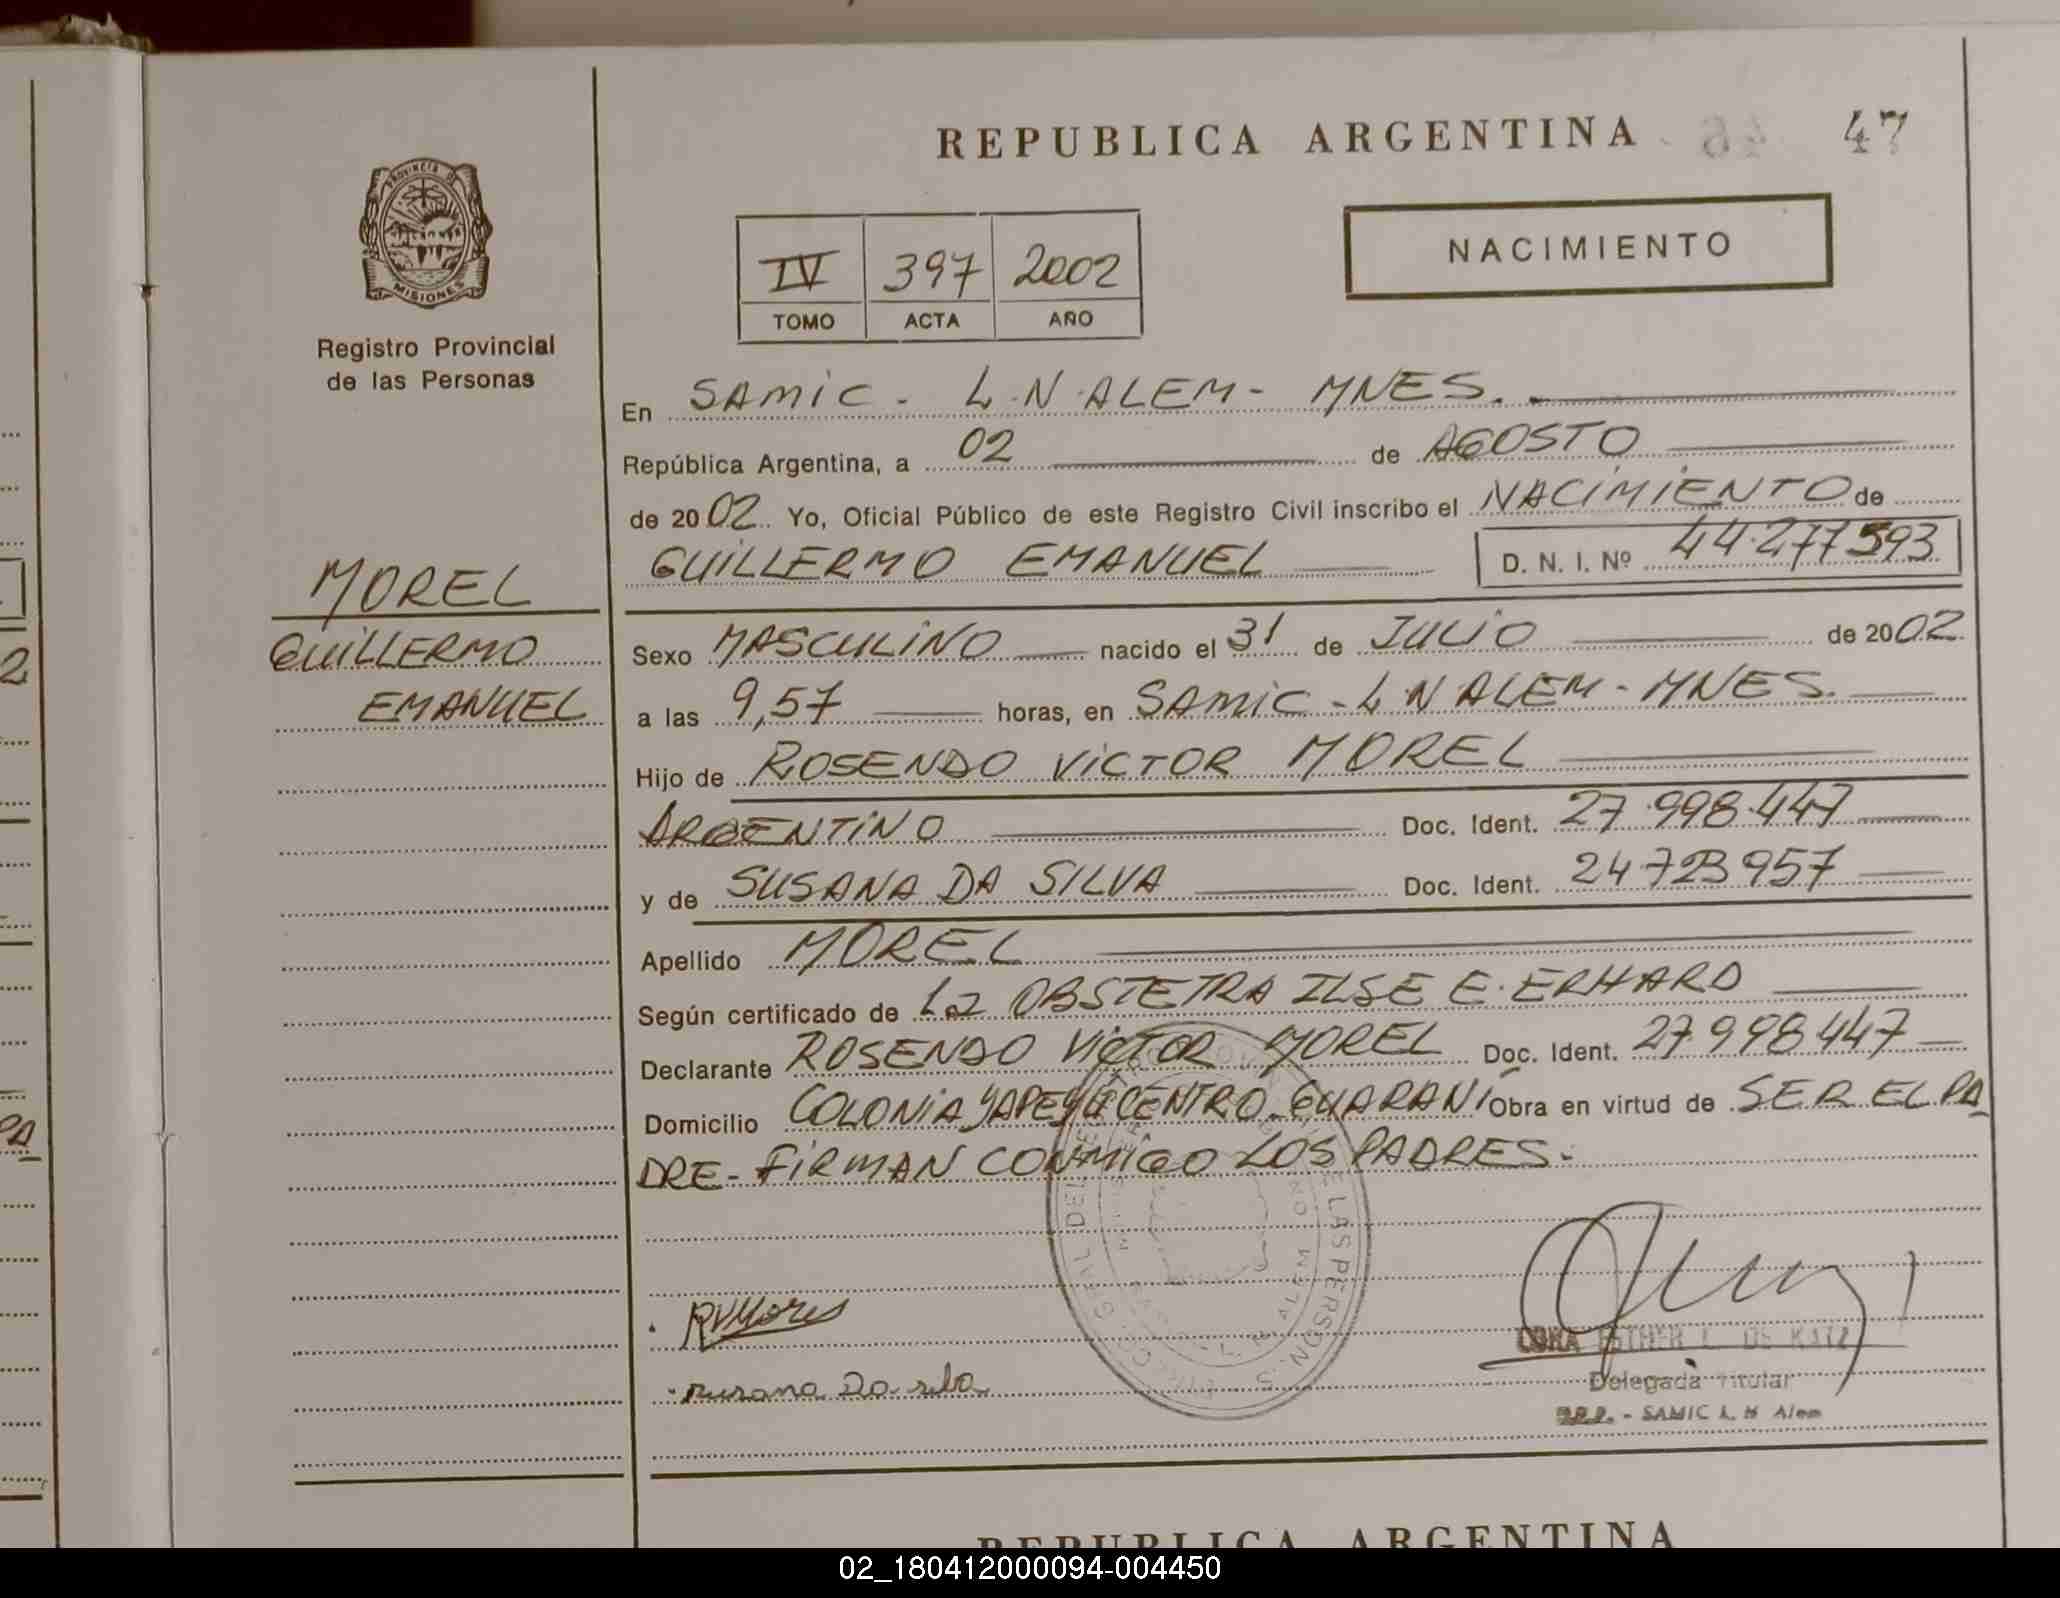 REPUBLICA ARGENTINA 47
PROVINCIA DE MISIONES
Registro Provincial
de las Personas
NACIMIENTO
IV 397 2002
TOMO ACTA AÑO
En SAMIC - L.N.ALEM - MNES.
República Argentina, a 02 de AGOSTO
de 2002 Yo, Oficial Público de este Registro Civil inscribo el NACIMIENTO de
GUILLERMO EMANUEL D. N. I. Nº 44.277593
MOREL
GUILLERMO
EMANUEL
Sexo MASCULINO nacido el 31 de JULIO de 2002
a las 9,57 horas, en SAMIC - L N ALEM - MNES.
Hijo de ROSENDO VICTOR MOREL
ARGENTINO Doc. Ident. 27.998.447
y de SUSANA DA SILVA Doc. Ident. 24.723957
Apellido MOREL
Según certificado de La OBSTETRA ILSE E. ERHARD
Declarante ROSENDO VICTOR MOREL Doc. Ident. 27.998447
Domicilio COLONIA YAPEYÚ CENTRO GUARANÍ Obra en virtud de SER EL PA
DRE - FIRMAN CONMIGO LOS PADRES.-
RVMorel
susana Da silva
CORA ESTHER L. DE KATZ
Delegada Titular
R.P.P. - SAMIC L. N Alem
REPUBLICA ARGENTINA
02_180412000094-004450